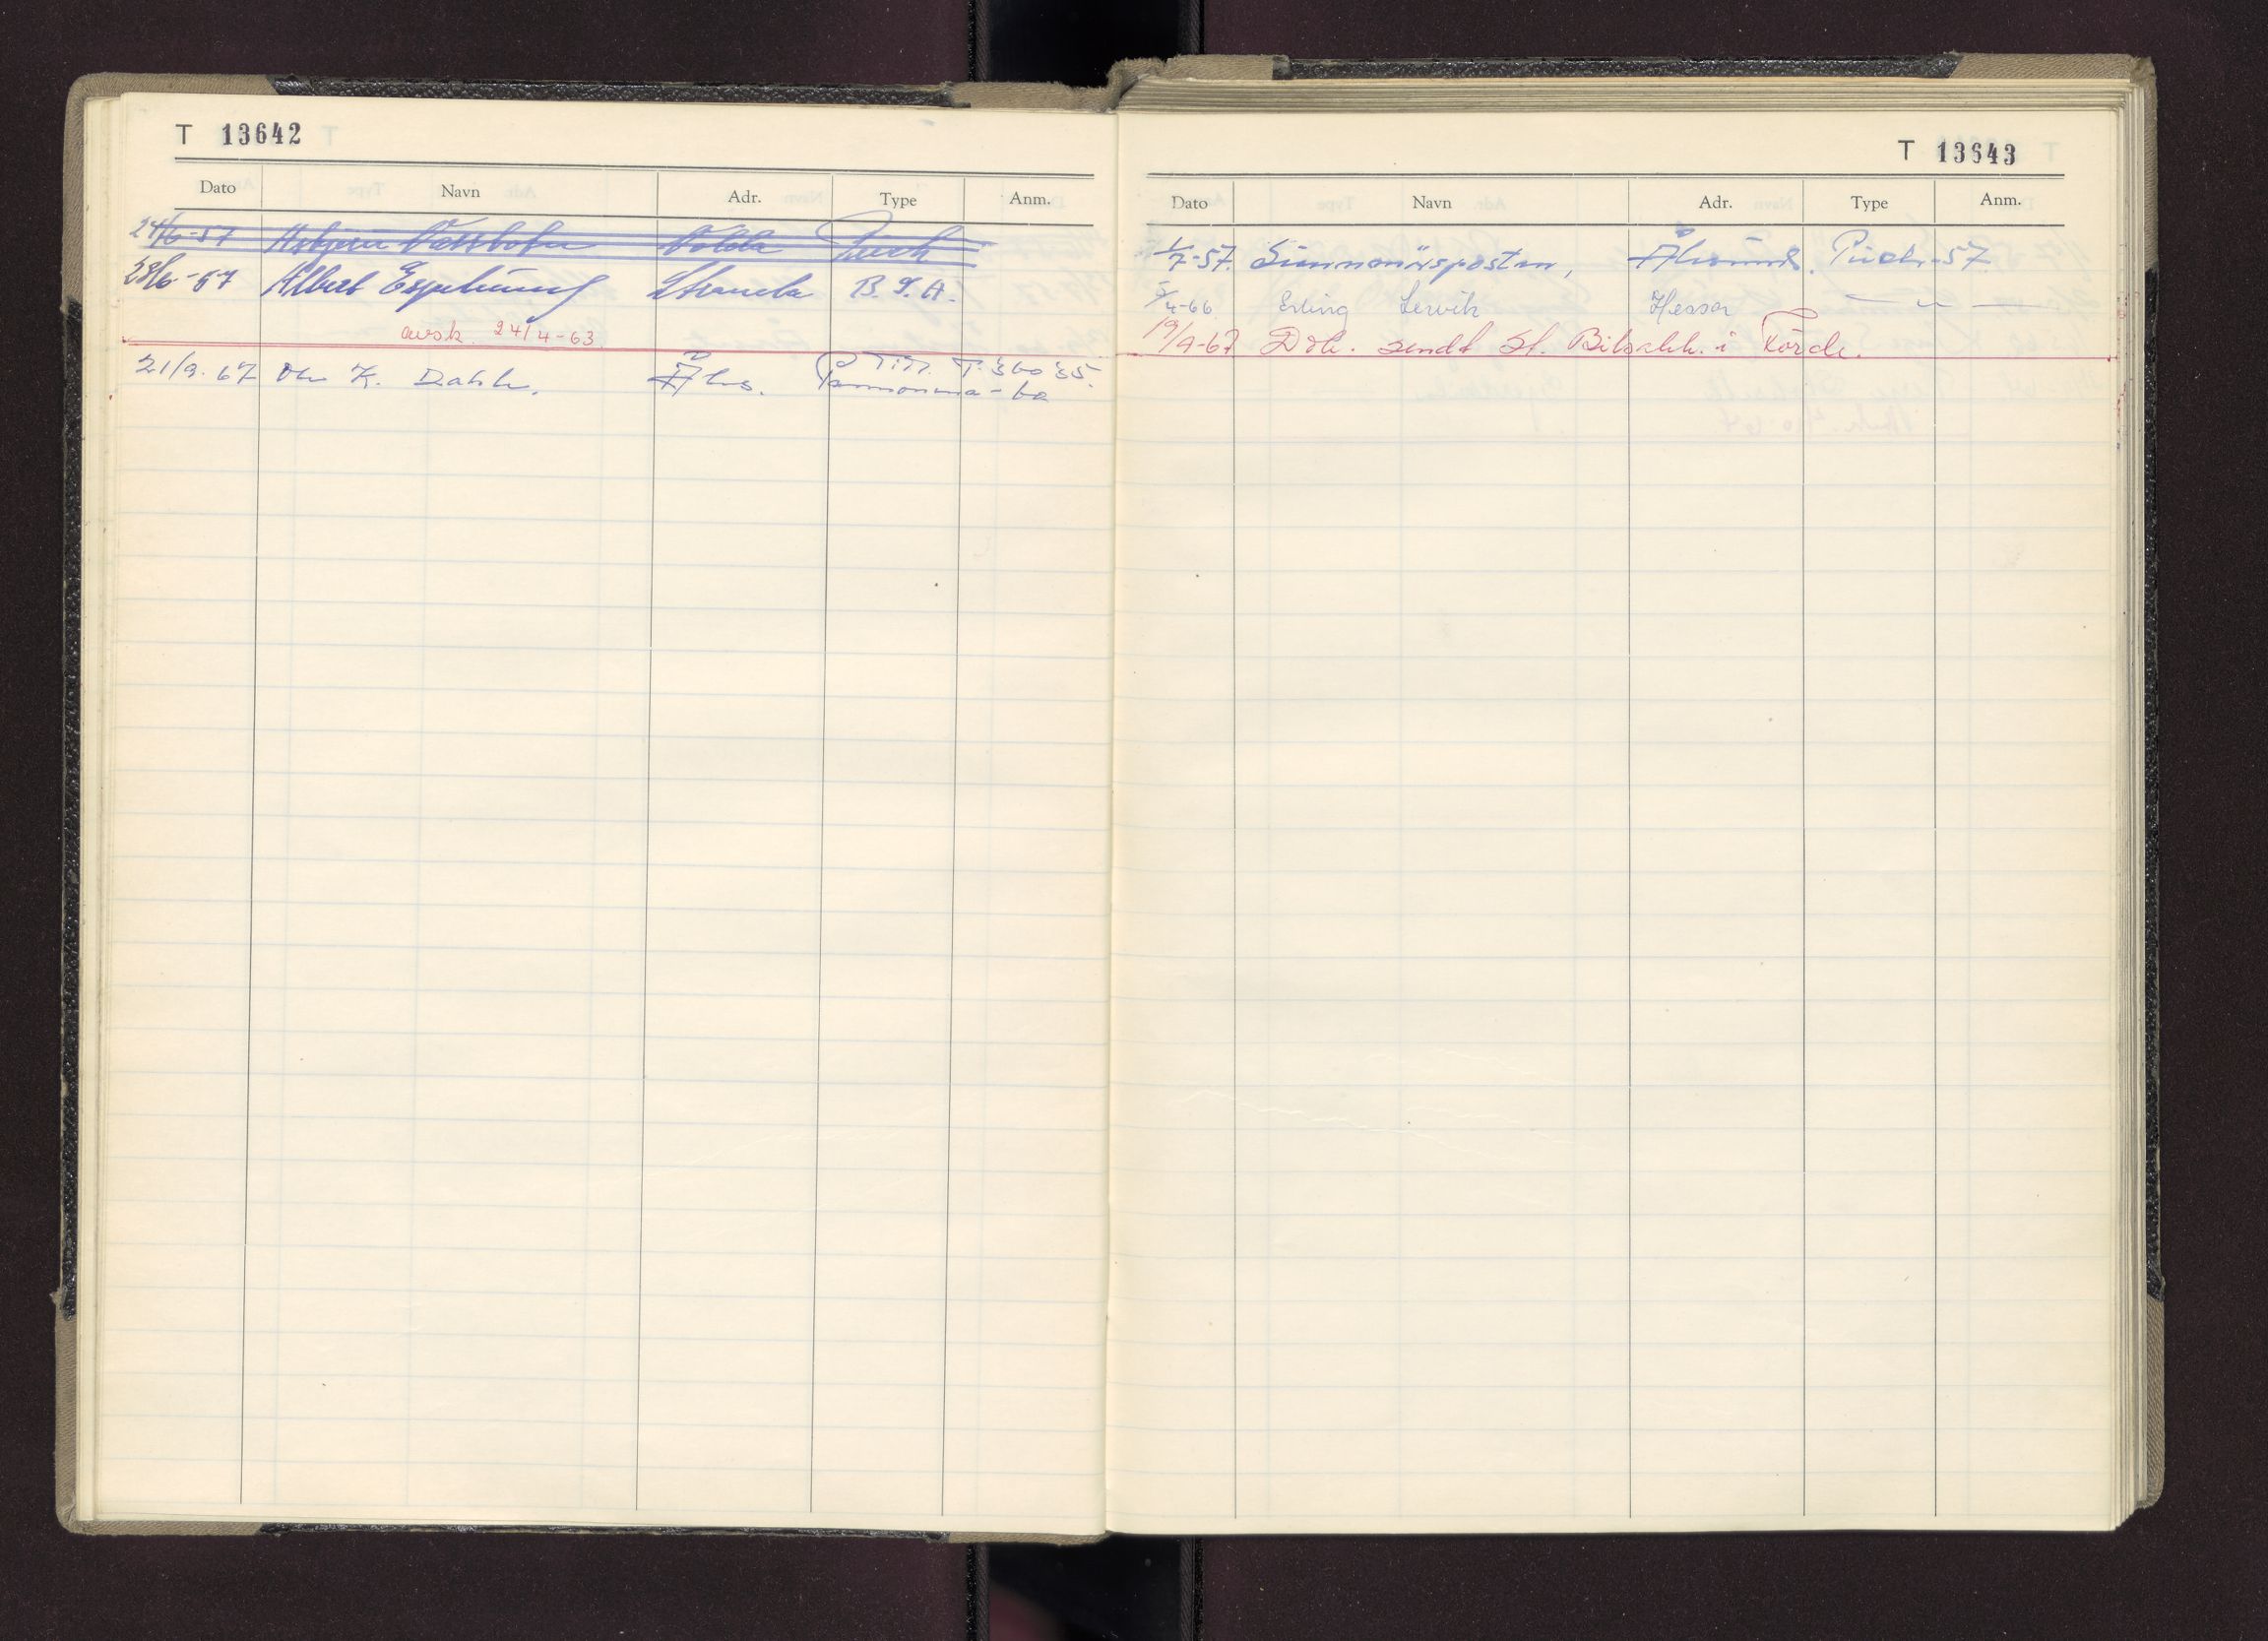 T 13642
Dato Navn Adr. Type Anm.
24/6-57 Asbjørn Volda Puch
28/6-57 Albert Espehaug Stranda B.S.A.
avsk. 24/4-63
21/9.67 Ole K. Dahle. Åles. Tidl. T.36035.
-60
T 13643
Dato Navn Adr. Type Anm.
1/7-57. Sunnmørsposten, Ålesund. Puch-57.
5/4-66 Erling Lervik Hessa — " —
19/9-67 Dok. sendt St. Bilsakk. i Förde.